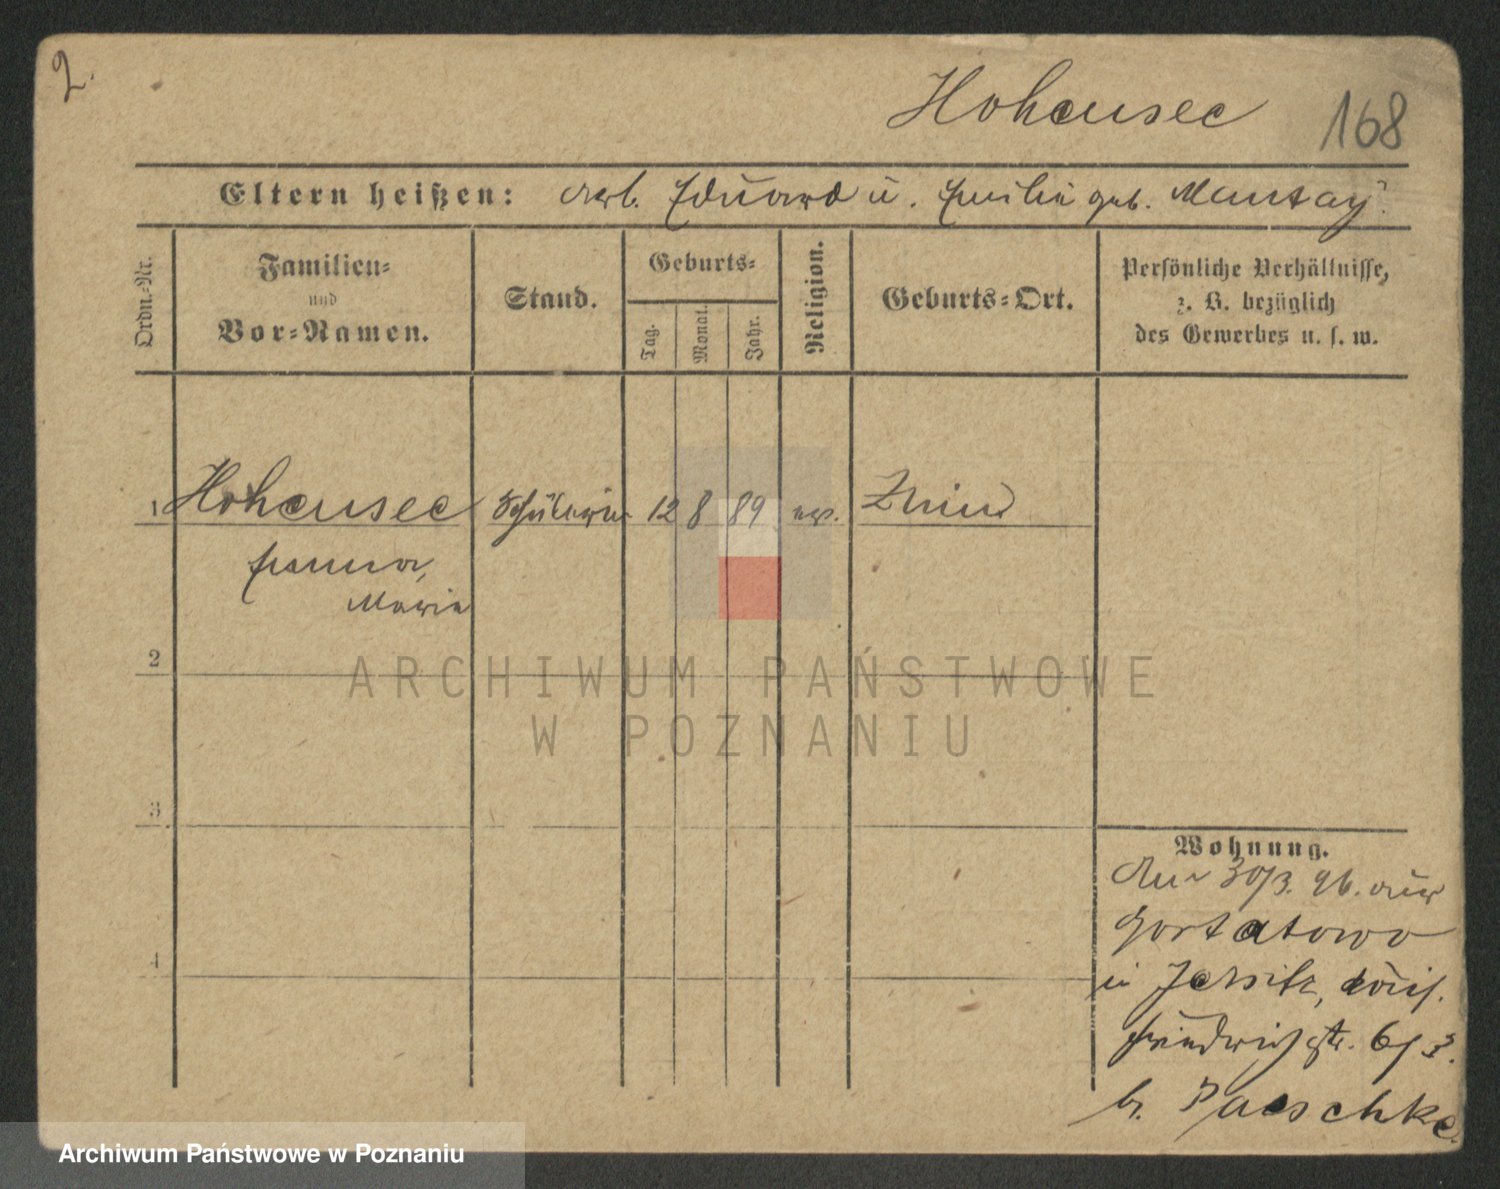 2.
Hohensee 168
Eltern heißen: Arb. Eduard u. Emilie geb. Mantay.
Ordn.-Nr.
Familien-
und
Vor-Namen.
Stand.
Geburts-
Tag.
Monat.
Jahr.
Religion.
Geburts-Ort.
Persönliche Verhältnisse,
z. B. bezüglich
des Gewerbes u. s. w.
1 Hohensee Schülerin 12 8 89 ev. Znin
Emma,
Marie
2
3
4
ARCHIWUM PAŃSTWOWE
W POZNANIU
Wohnung.
30/3. 96. aus
Gortatowo
in Jersitz,
Friedrichstr. 6/3.
b. Paeschke.
Archiwum Państwowe w Poznaniu